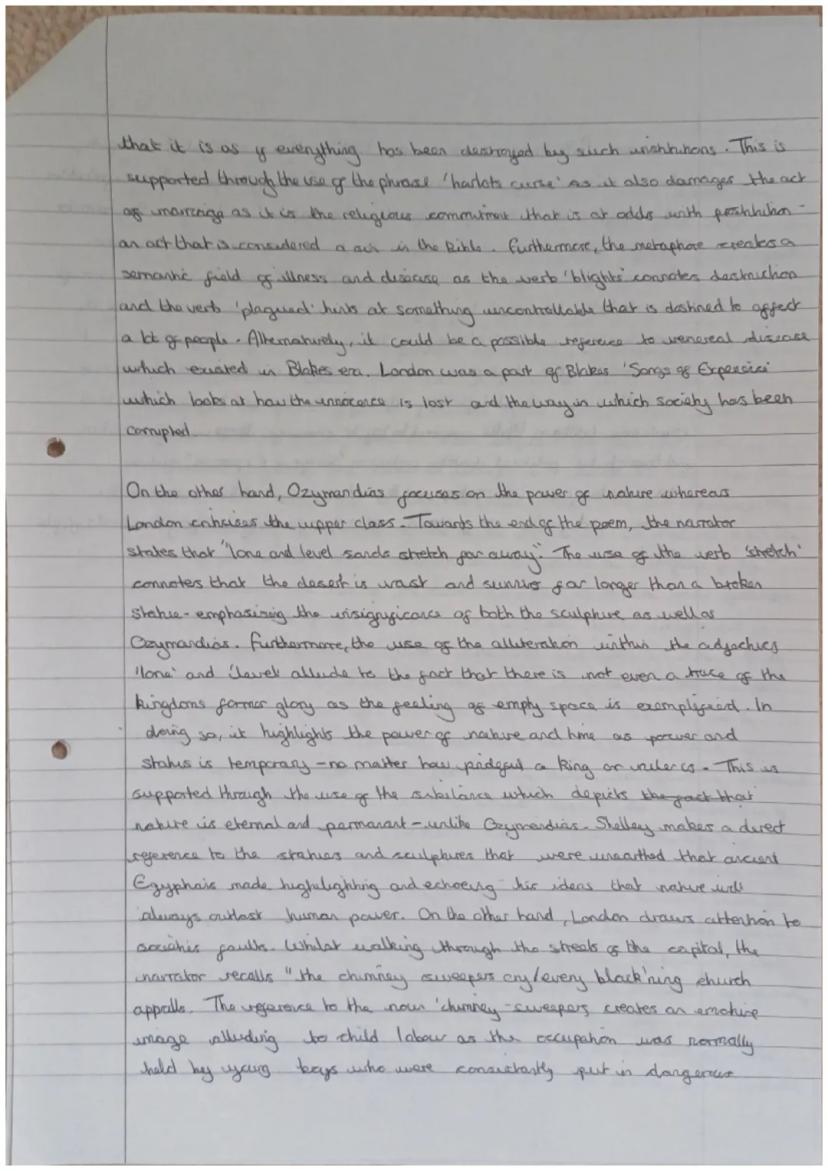 that it is as if everything has been destroyed by such institutions. This is
supported through the use of the phrase 'harlots curse' as it also damages the act
of marriage as it is the religious commitment that is at odds with prostitution -
an act that is considered a sin in the Bible. Furthermore, the metaphor creates a
semantic field of illness and disease as the verb 'blights' connotes destruction
and the verb 'plagued' hints at something uncontrollable that is destined to affect
a lot of people. Alternatively, it could be a possible reference to venereal disease
which existed in Blakes era. London was a part of Blakes 'Songs of
which looks at how the innocence is lost and the way in which society has been
corrupted.
On the other hand, Ozymandias focuses on the power of nature whereas
London critisises the upper class. Towards the end of the poem, the narrator
states that "lone and level sands stretch far away." The use of the verb 'stretch'
connotes that the desert is vast and survives far longer than a broken
statue - emphasising the insignificance of both the sculpture as well as
Ozymandias. Furthermore, the use of the alliteration within the adjectives
'lone' and 'level' allude to the fact that there is not even a trace of the
kingdoms former glory as the feeling of empty space is exemplified. In
doing so, it highlights the power of nature and time as power and
status is temporary - no matter how a king or ruler is. This is
supported through the use of the sibilance which depicts the fact that
nature is eternal and permanant - unlike Ozymandias. Shelley makes a direct
reference to the statues and sculptures that were unearthed that ancient
Egyptians made highlighting and echoeing his ideas that nature will
always outlast human power. On the other hand, London draws attention to
faults. Whilst walking through the streets of the capital, the
narrator recalls "the chimney sweepers cry/every black'ning church
appalls. The reference to the noun 'chimney-sweepers, creates an emotive
image alluding to child labour as the occupation was normally
held by young boys who were consistantly put in dangerous